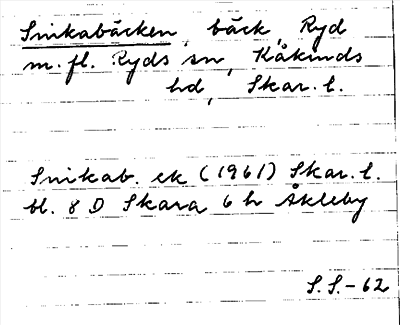 Snikabäcken, bäck, Ryd
m. fl. Ryds sn, Kåkinds
hd, Skar. l.
Snikab. ek (1961) Skar. l.
bl. 8 D Skara 6 h Åkleby
S.S.-62